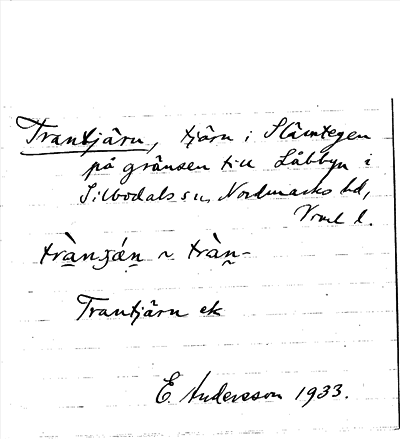 Trantjärn, tjärn i Släntegen
på gränsen till Låbbyn i
Silbodals sn, Nordmarks hd,
Vrml l.
trànjǽn ~ tràn-
Trantjärn ek
E. Andersson 1933.